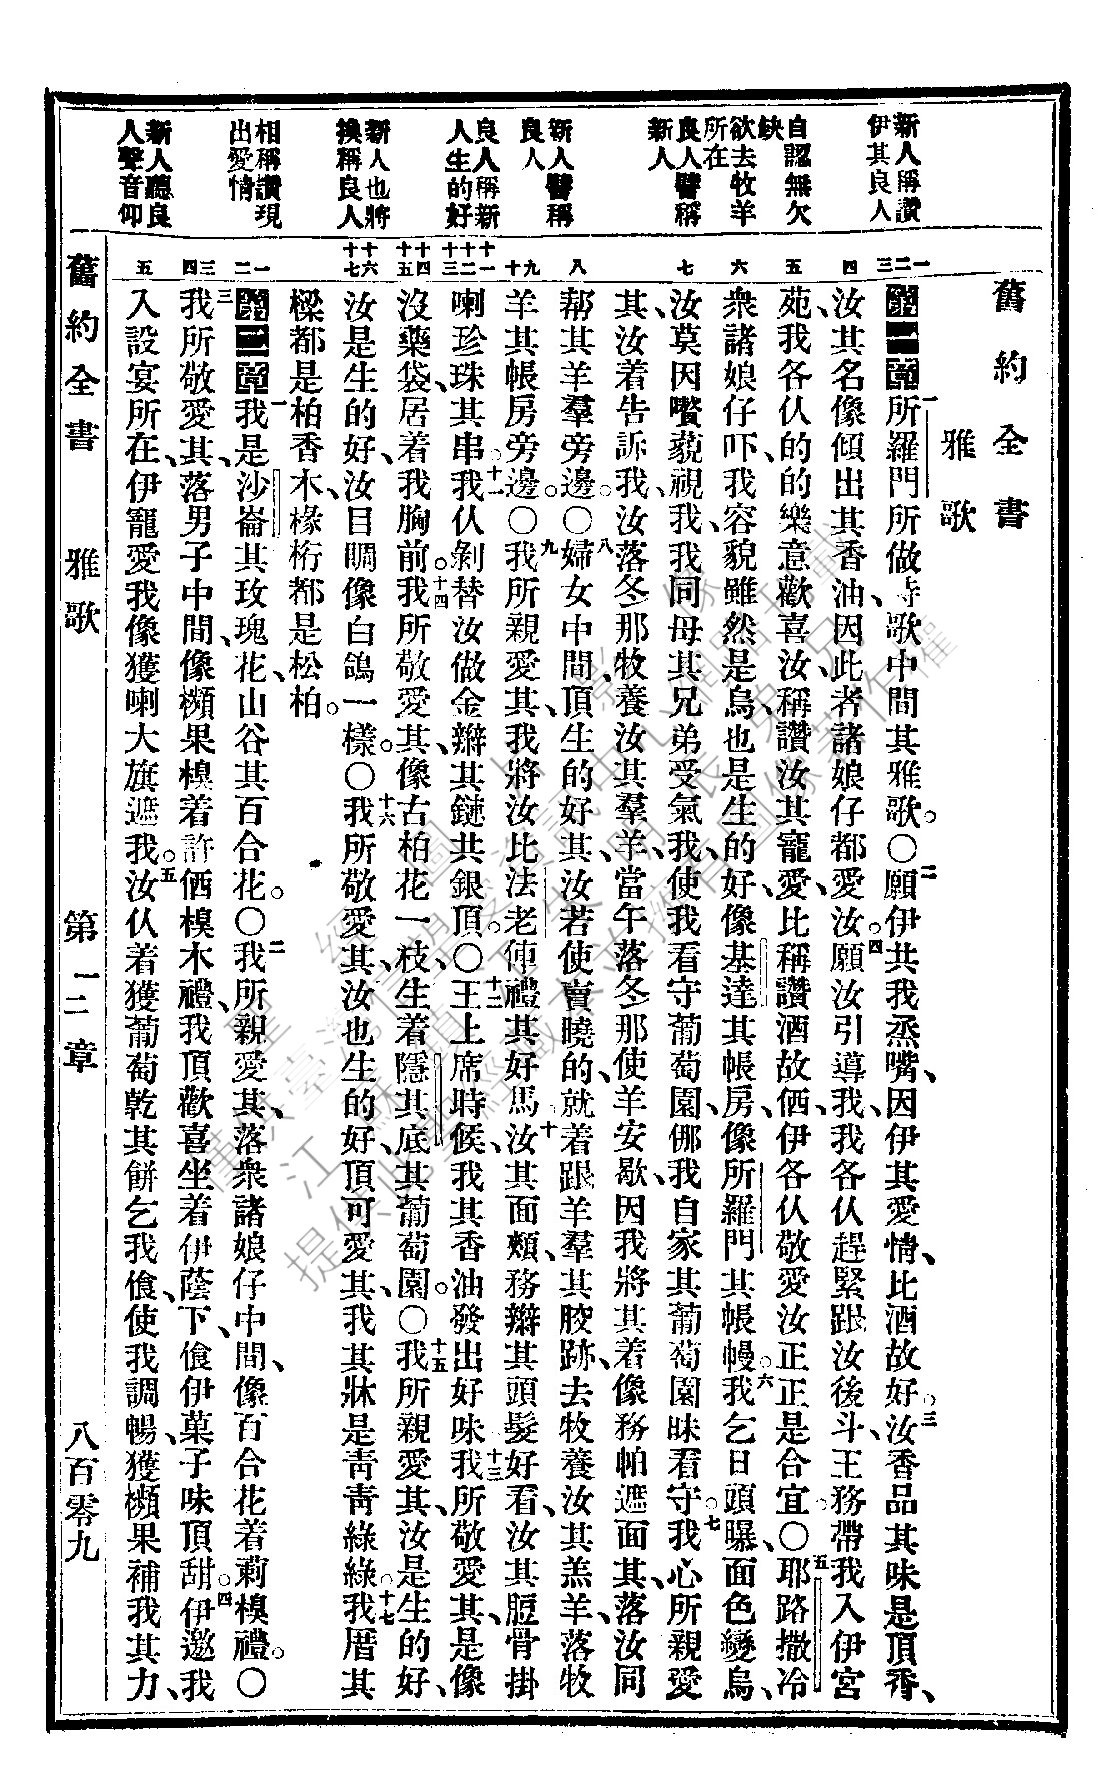 舊約全書
雅歌
新人稱讚
伊其良人
自認無欠
缺
欲去牧羊
所在
良人譬稱
新人
新人譬稱
良人
良人稱新
人生的好
新人也將
換稱良人
相稱讚現
出愛情
新人聽良
人聲音仰
第一章一所羅門所做詩歌中間其雅歌。○二願伊共我烝嘴、因伊其愛情、比酒故好。三汝香品其味是頂香、
汝其名像傾出其香油、因此者諸娘仔都愛汝。四願汝引導我、我各仈趕緊跟汝後斗、王務帶我入伊宮
苑、我各仈的的樂意歡喜汝、稱讚汝其寵愛、比稱讚酒故価、伊各仈敬愛汝正正是合宜。○五耶路撒冷
衆諸娘仔吓、我容貌雖然是烏、也是生的好、像基達其帳房、像所羅門其帳幔。六我乞日頭曝、面色變烏、
汝莫因嘐藐視我、我同母其兄弟受氣我、使我看守葡萄園、𠆧我自家其葡萄園昧看守。七我心所親愛
其、汝着告訴我、汝落冬那牧養汝其羣羊、當午落冬那使羊安歇、因我將其着像務帕遮面其、落汝同
帮其羊羣旁邊。○八婦女中間、頂生的好其、汝若使賣曉的、就着跟羊羣其胶跡、去牧養汝其羔羊、落牧
羊其帳房旁邊。○九我所親愛其、我將汝比法老俥禮其好馬。十汝其面頰務辮其頭髮好看、汝其脰骨掛
喇珍珠其串。十一我仈剝替汝做金辮其鏈共銀頂。○十二王上席時候、我其香油發出好味。十三我所敬愛其、是像
沒藥袋、居着我胸前。十四我所敬愛其、像古柏花一枝、生着隱其底其葡萄園。○十五我所親愛其、汝是生的好、
汝是生的好、汝目睭像白鴿一樣。○十六我所敬愛其、汝也生的好、頂可愛其、我其牀是青青綠綠。十七我厝其
樑都是柏香木、椽桁都是松柏。
第二章一我是沙崙其玫瑰花、山谷其百合花。○二我所親愛其、落衆諸娘仔中間、像百合花着莿模禮。○
三我所敬愛其、落男子中間、像櫇果模着許価模木禮、我頂歡喜坐着伊蔭下、飡伊菓子味頂甜。四伊邀我
入設宴所在、伊寵愛我、像獲喇大旗遮我。五汝仈着獲葡萄乾其餅乞我飡、使我調暢、獲櫇果補我其力、
舊約全書　雅歌　第一二章　八百零九